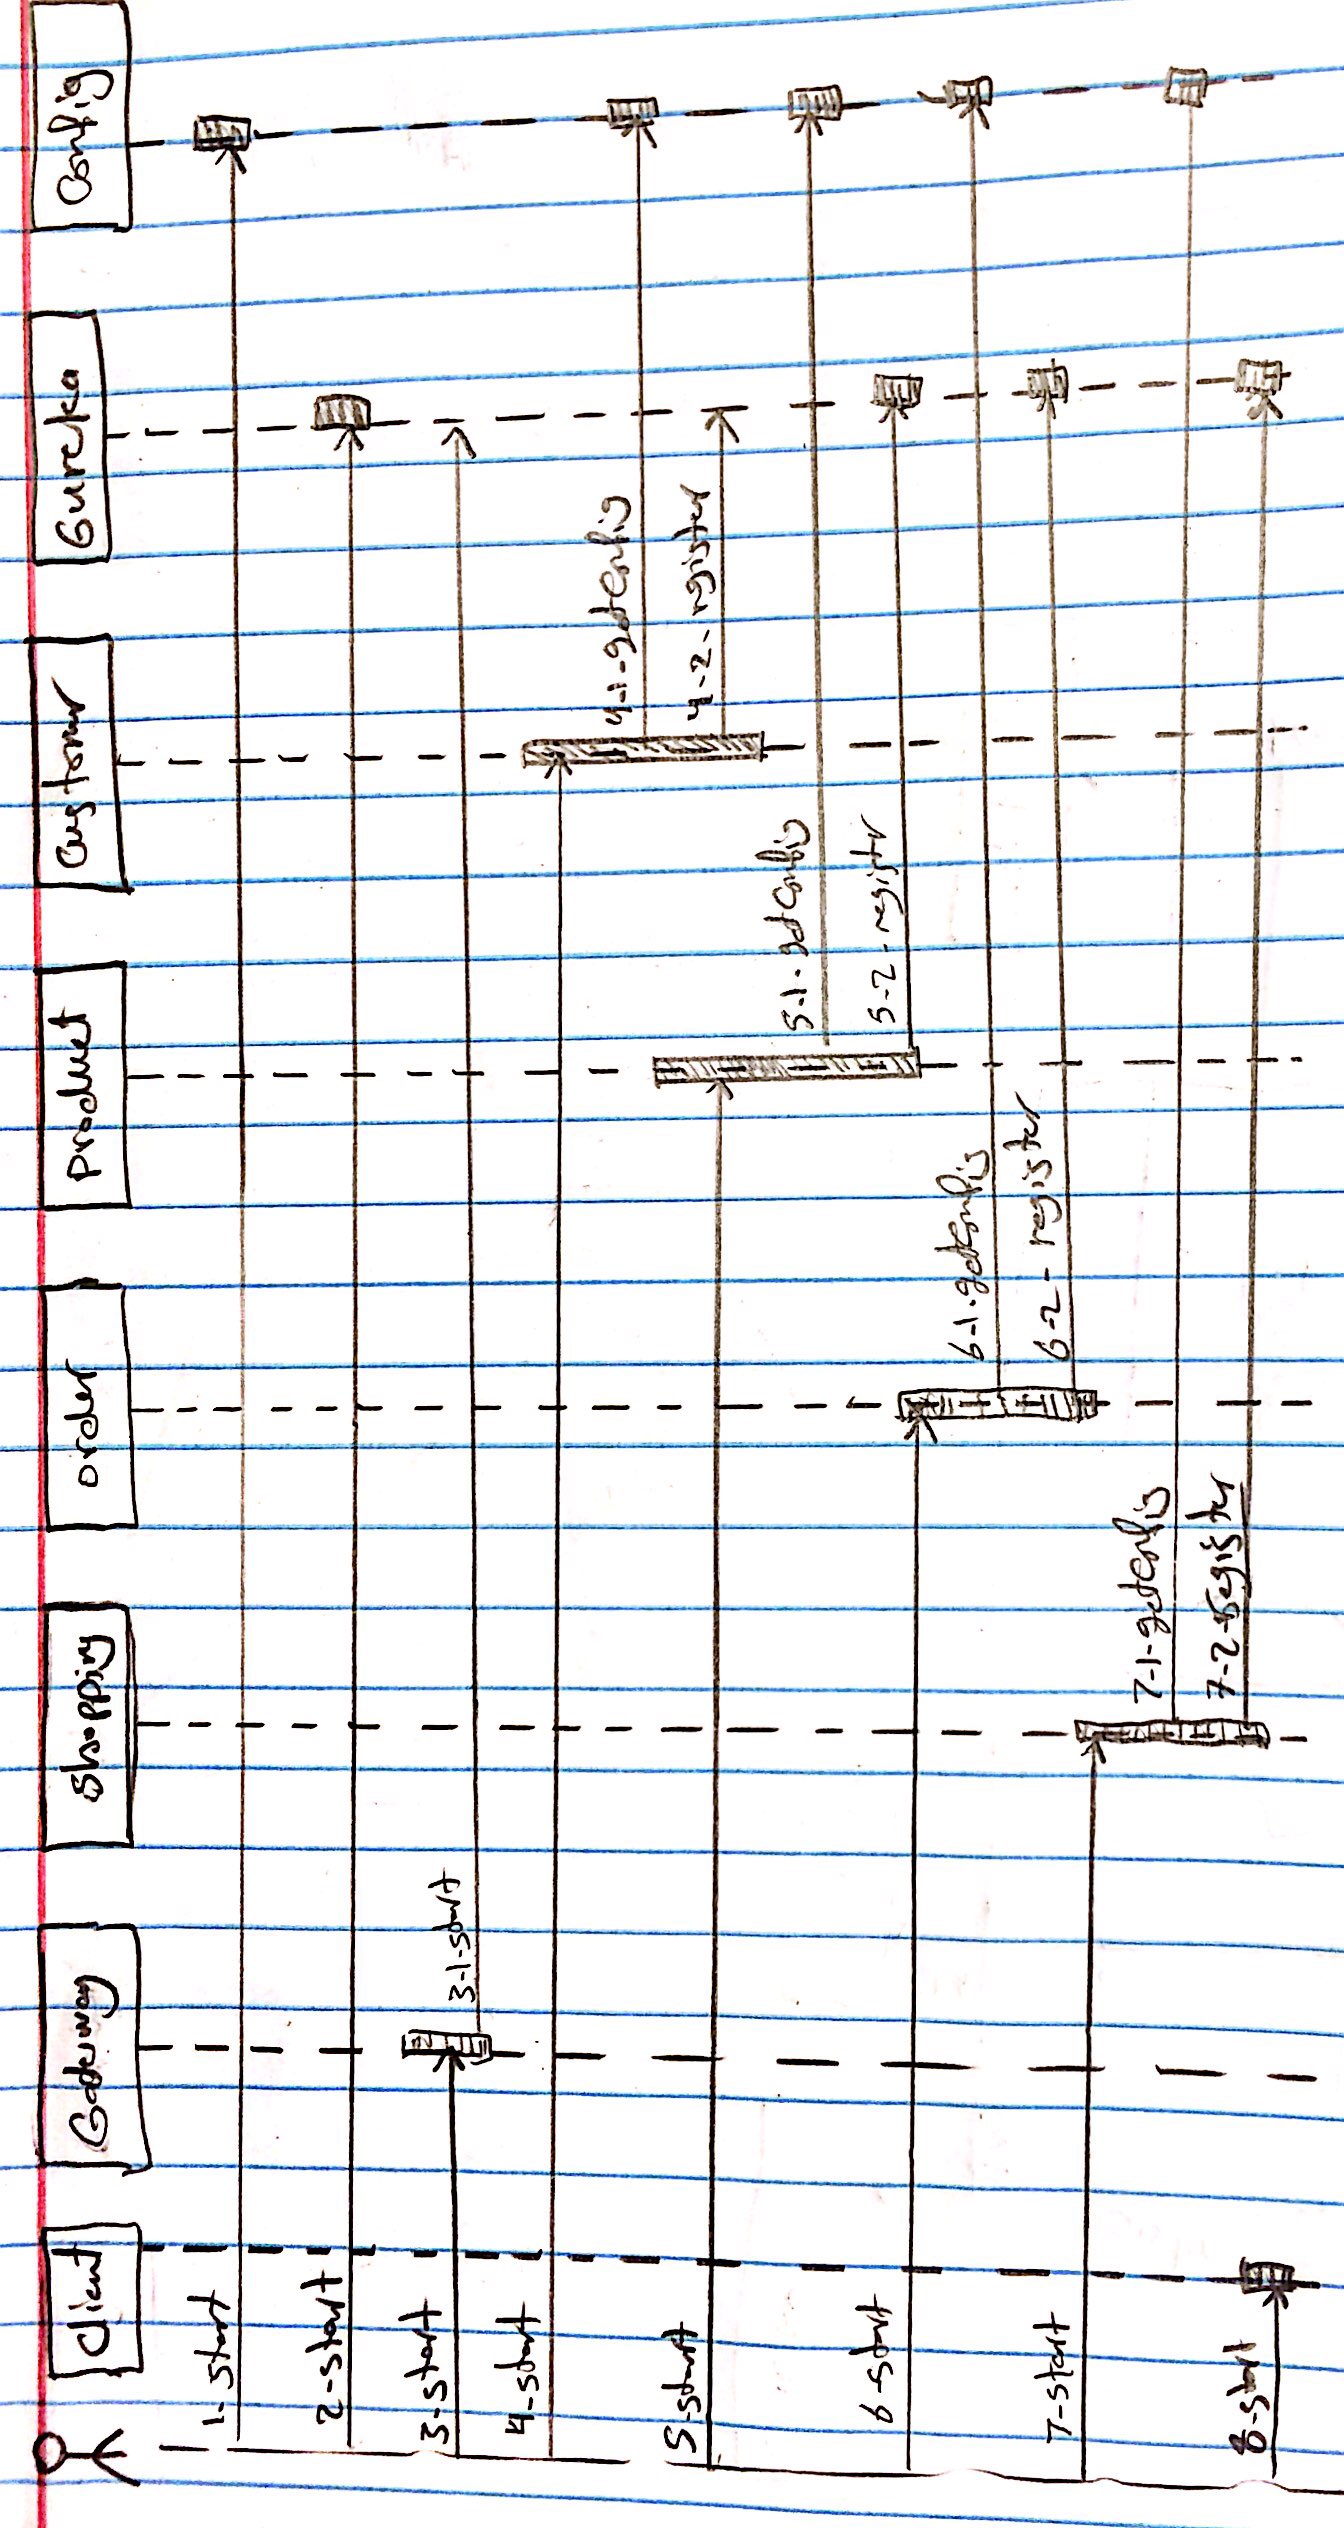 Client Gateway Shopping order Product Customer Eureka Config
1- start
2-start
3-start
3-1-start
4-start
4-1-getConfig
5-start
4-2-register
5-1-getConfig
6-start
5-2-register
6-1-getConfig
6-2-register
7-start
7-1-getConfig
7-2-register
8-start